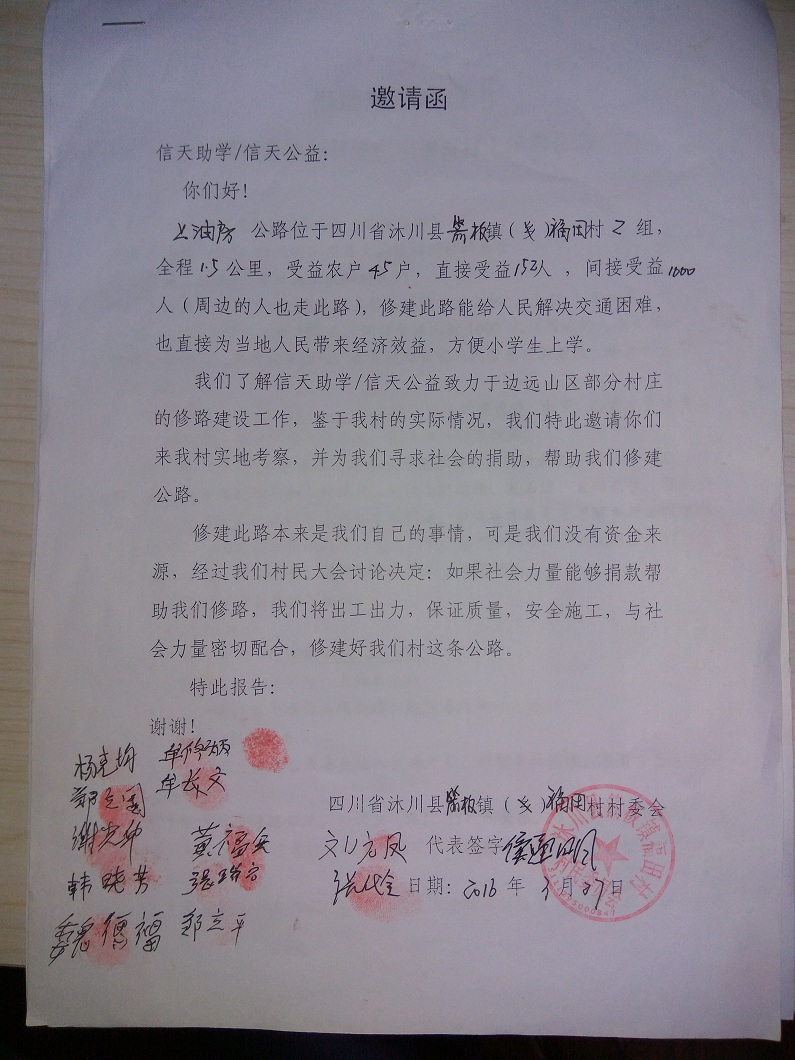 邀请函
信天助学/信天公益：
你们好！
上油房 公路位于四川省沐川县箭板镇（乡）福田村 2 组，
全程 1.5 公里，受益农户 45 户，直接受益 152人 ，间接受益 1000
人（周边的人也走此路），修建此路能给人民解决交通困难，
也直接为当地人民带来经济效益，方便小学生上学。
我们了解信天助学/信天公益致力于边远山区部分村庄
的修路建设工作，鉴于我村的实际情况，我们特此邀请你们
来我村实地考察，并为我们寻求社会的捐助，帮助我们修建
公路。
修建此路本来是我们自己的事情，可是我们没有资金来
源，经过我们村民大会讨论决定：如果社会力量能够捐款帮
助我们修路，我们将出工出力，保证质量，安全施工，与社
会力量密切配合，修建好我们村这条公路。
特此报告：
谢谢！
四川省沐川县箭板镇（乡）福田村村委会
代表签字
日期：2016 年 月 27 日
牟长文
谢光
黄福
韩晓芳
魏德福 邹立平